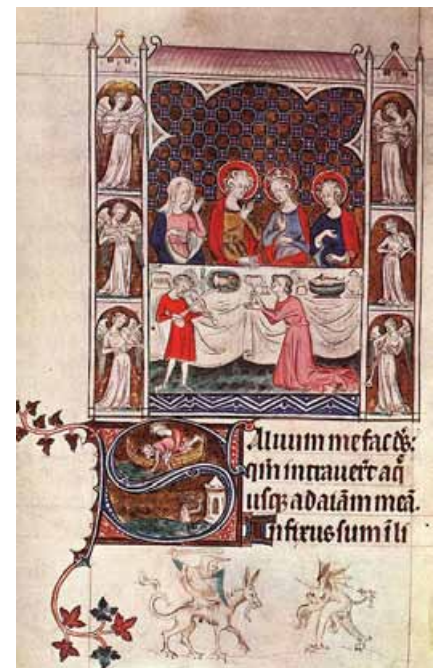 Saluum me fac ds:
qm intrauert aq̄
usq; ad aiām meā.
Infixus sum ī li